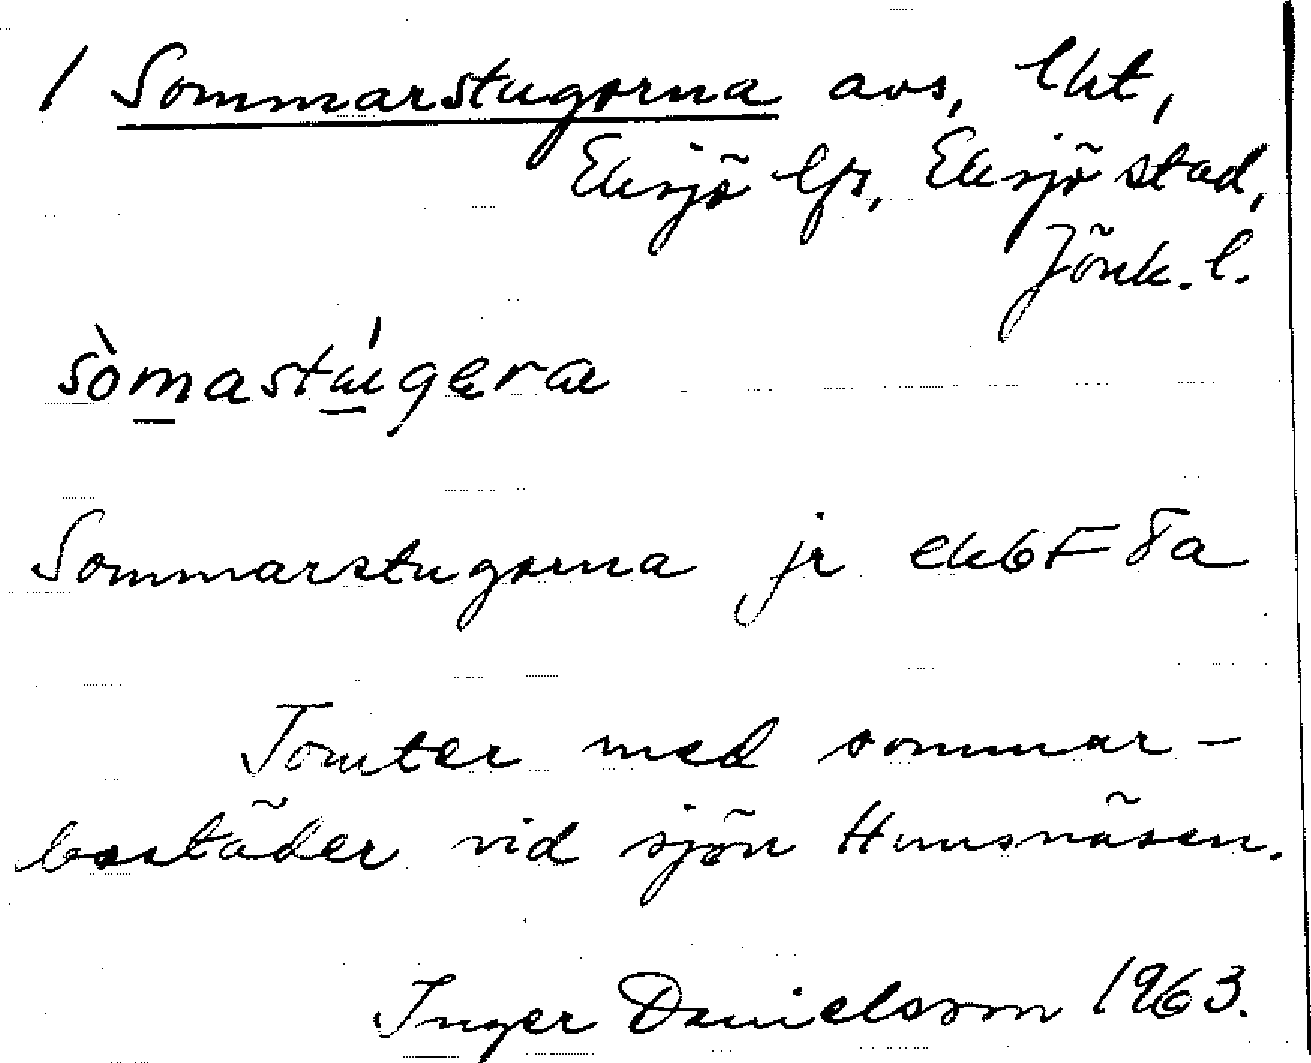 1 Sommarstugorna avs, lht,
Eksjö lfs, Eksjö stad,
Jönk. l.
sòmastúgera
Sommarstugorna jr ek6F8a
Tomter med sommar-
bostäder vid sjön Hunsnäsen.
Inger Danielsson 1963.